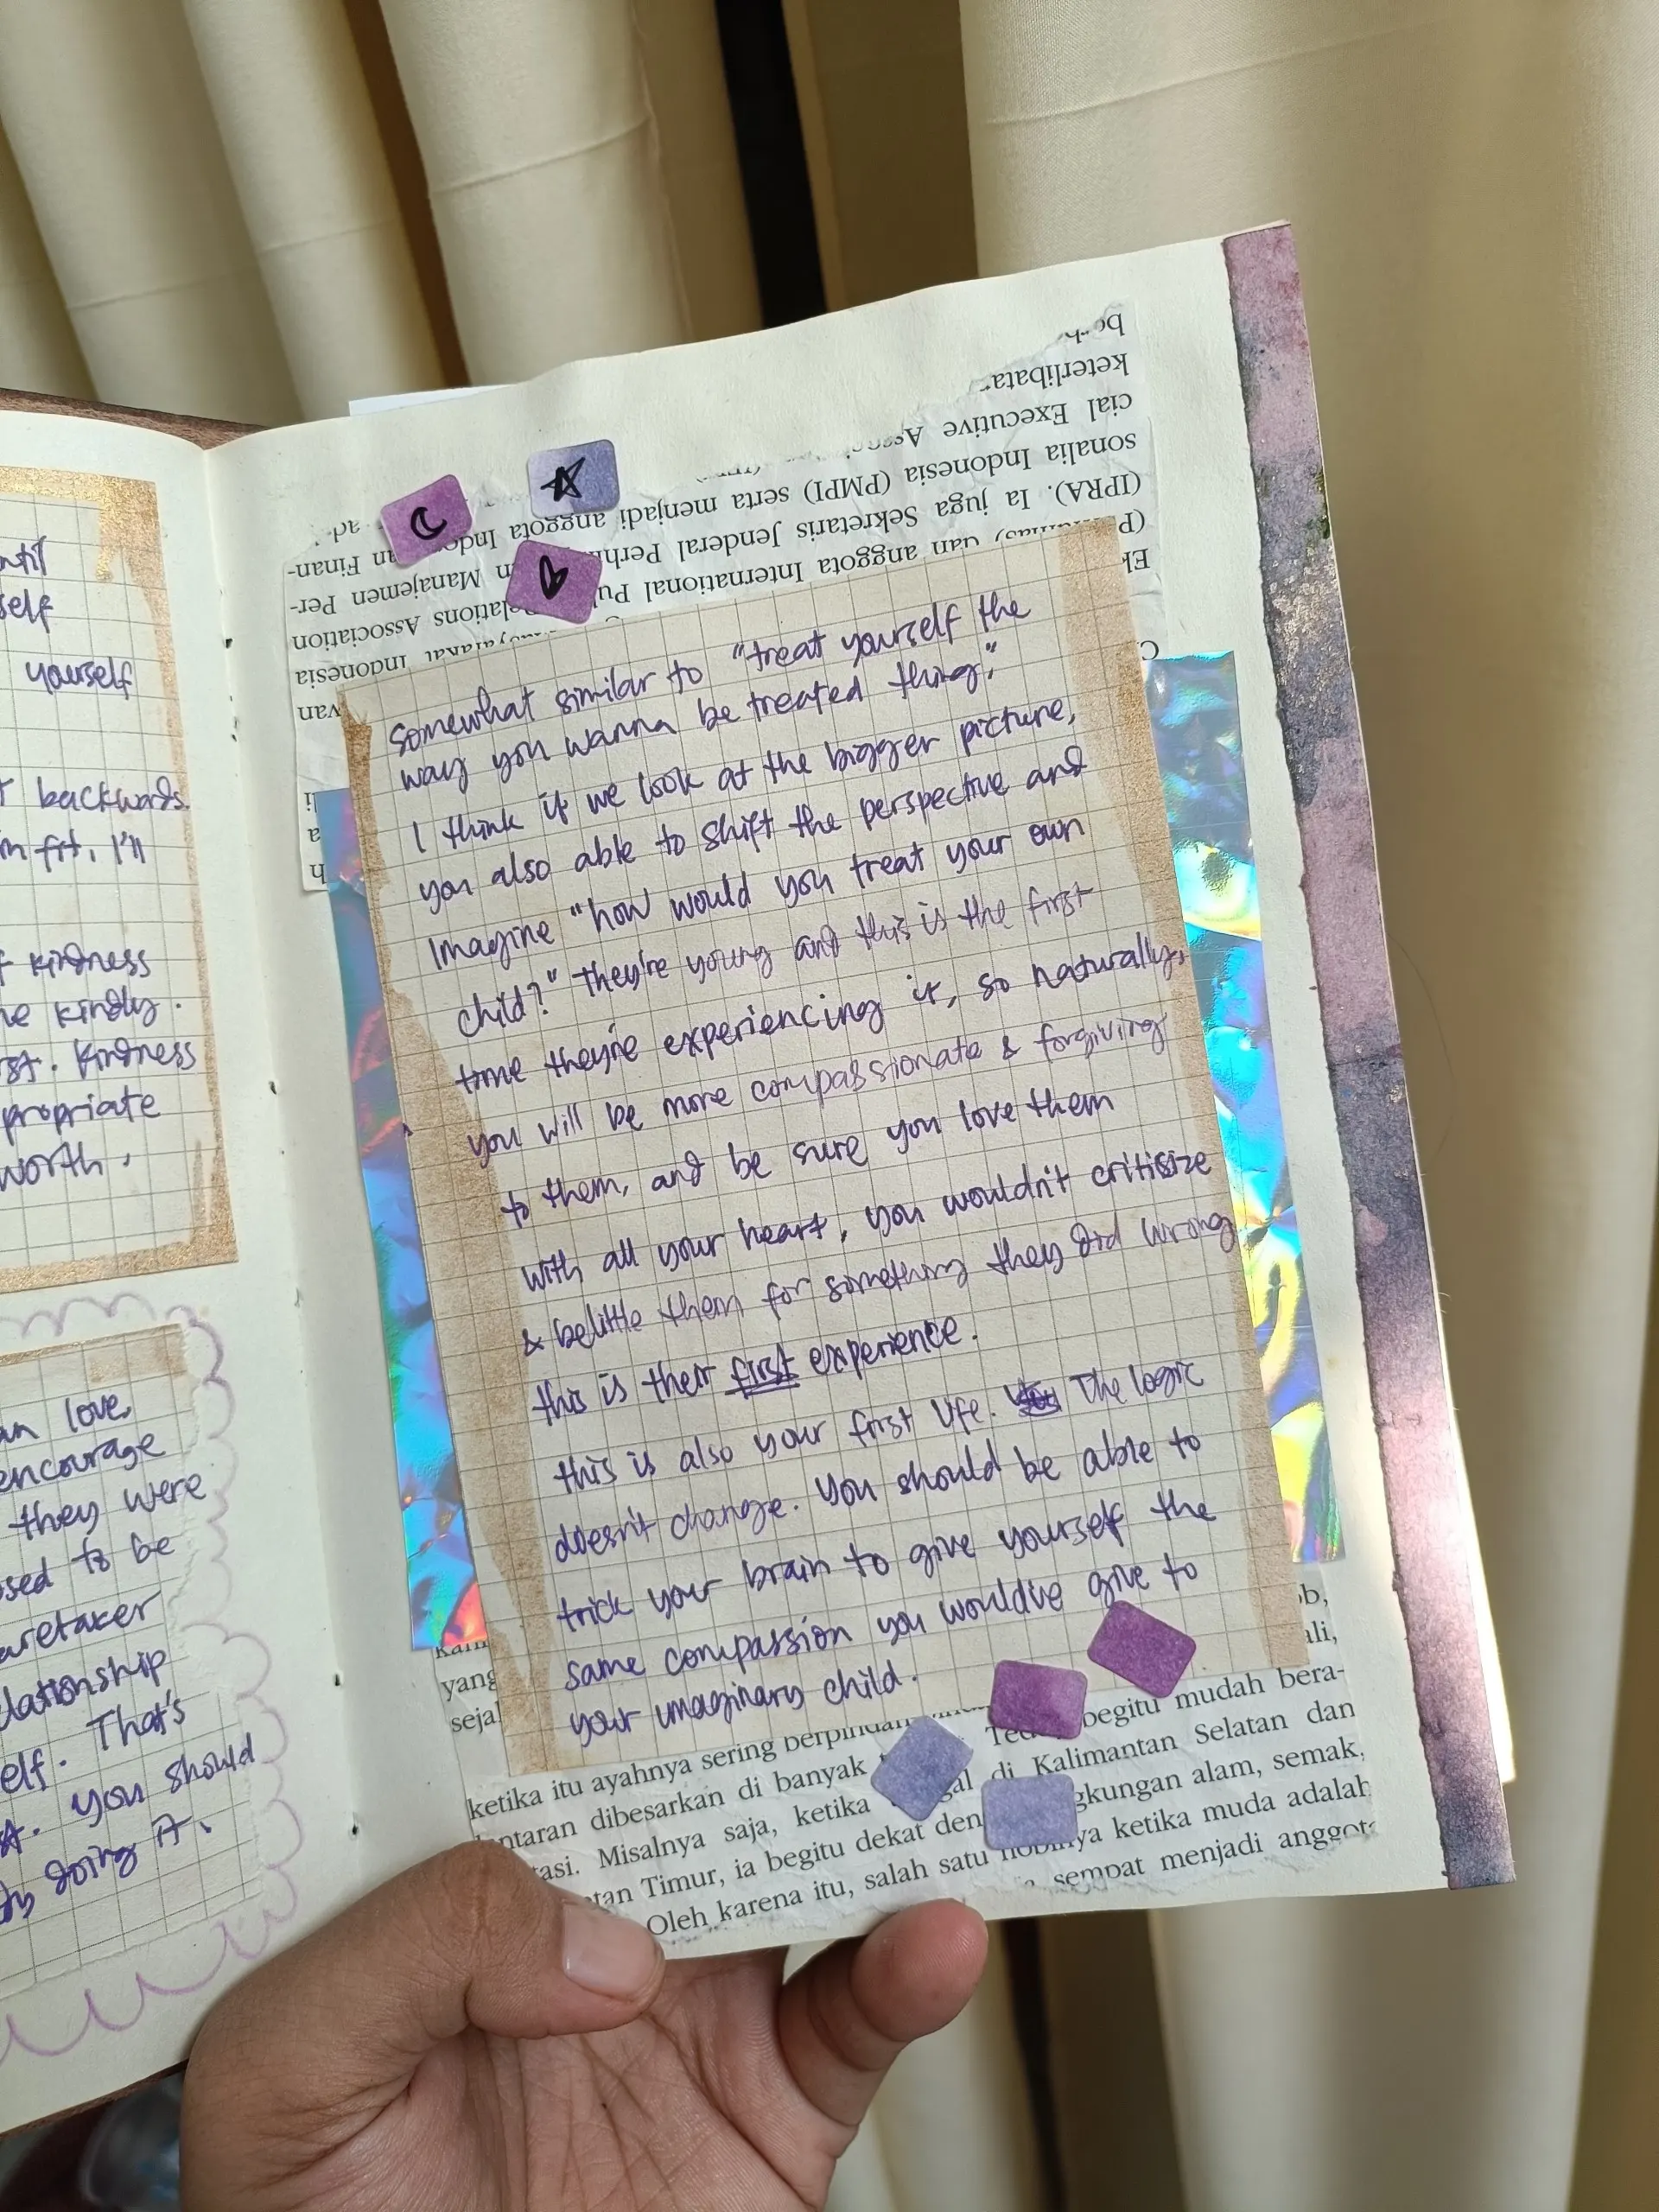 ntil
self
yourself
backwards.
fit, I'll
kindness
kindly.
Kindness
propriate
worth,
love,
encourage
they were
sed to be
aretaker
elationship
elf. That's
you should
doing it.
berh
keterlibatan
cial Executive Asso
sonalia Indonesia (PMPI) serta menjadi anggota Indo an Finan-
(IPRA). Ia juga Sekretaris Jenderal Perhi n Manajemen Per-
dan anggota International Pu Relations Association
Ek Indonesia
wan
somewhat similar to "treat yourself the
way you wanna be treated thing,"
I think if we look at the bigger picture,
you also able to shift the perspective and
Imagine "how would you treat your own
child?" They're young and this is the first
time they're experiencing it, so naturally,
you will be more compassionate & forgiving
to them, and be sure you love them
with all your heart, you wouldn't critisize
& belittle them for something they did wrong
this is their first experience.
this is also your first life. The logic
doesn't change. You should be able to
trick your brain to give yourself the
same compassion you would've give to
your imaginary child.
yang ali,
seja
ketika itu ayahnya sering berpindah begitu mudah bera-
ntaran dibesarkan di banyak di Kalimantan Selatan dan
tasi. Misalnya saja, ketika gkungan alam, semak,
tan Timur, ia begitu dekat den ya ketika muda adalah
Oleh karena itu, salah satu sempat menjadi anggota